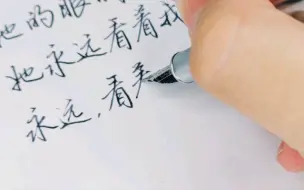 她的眼
她永远看着我
永远，看着